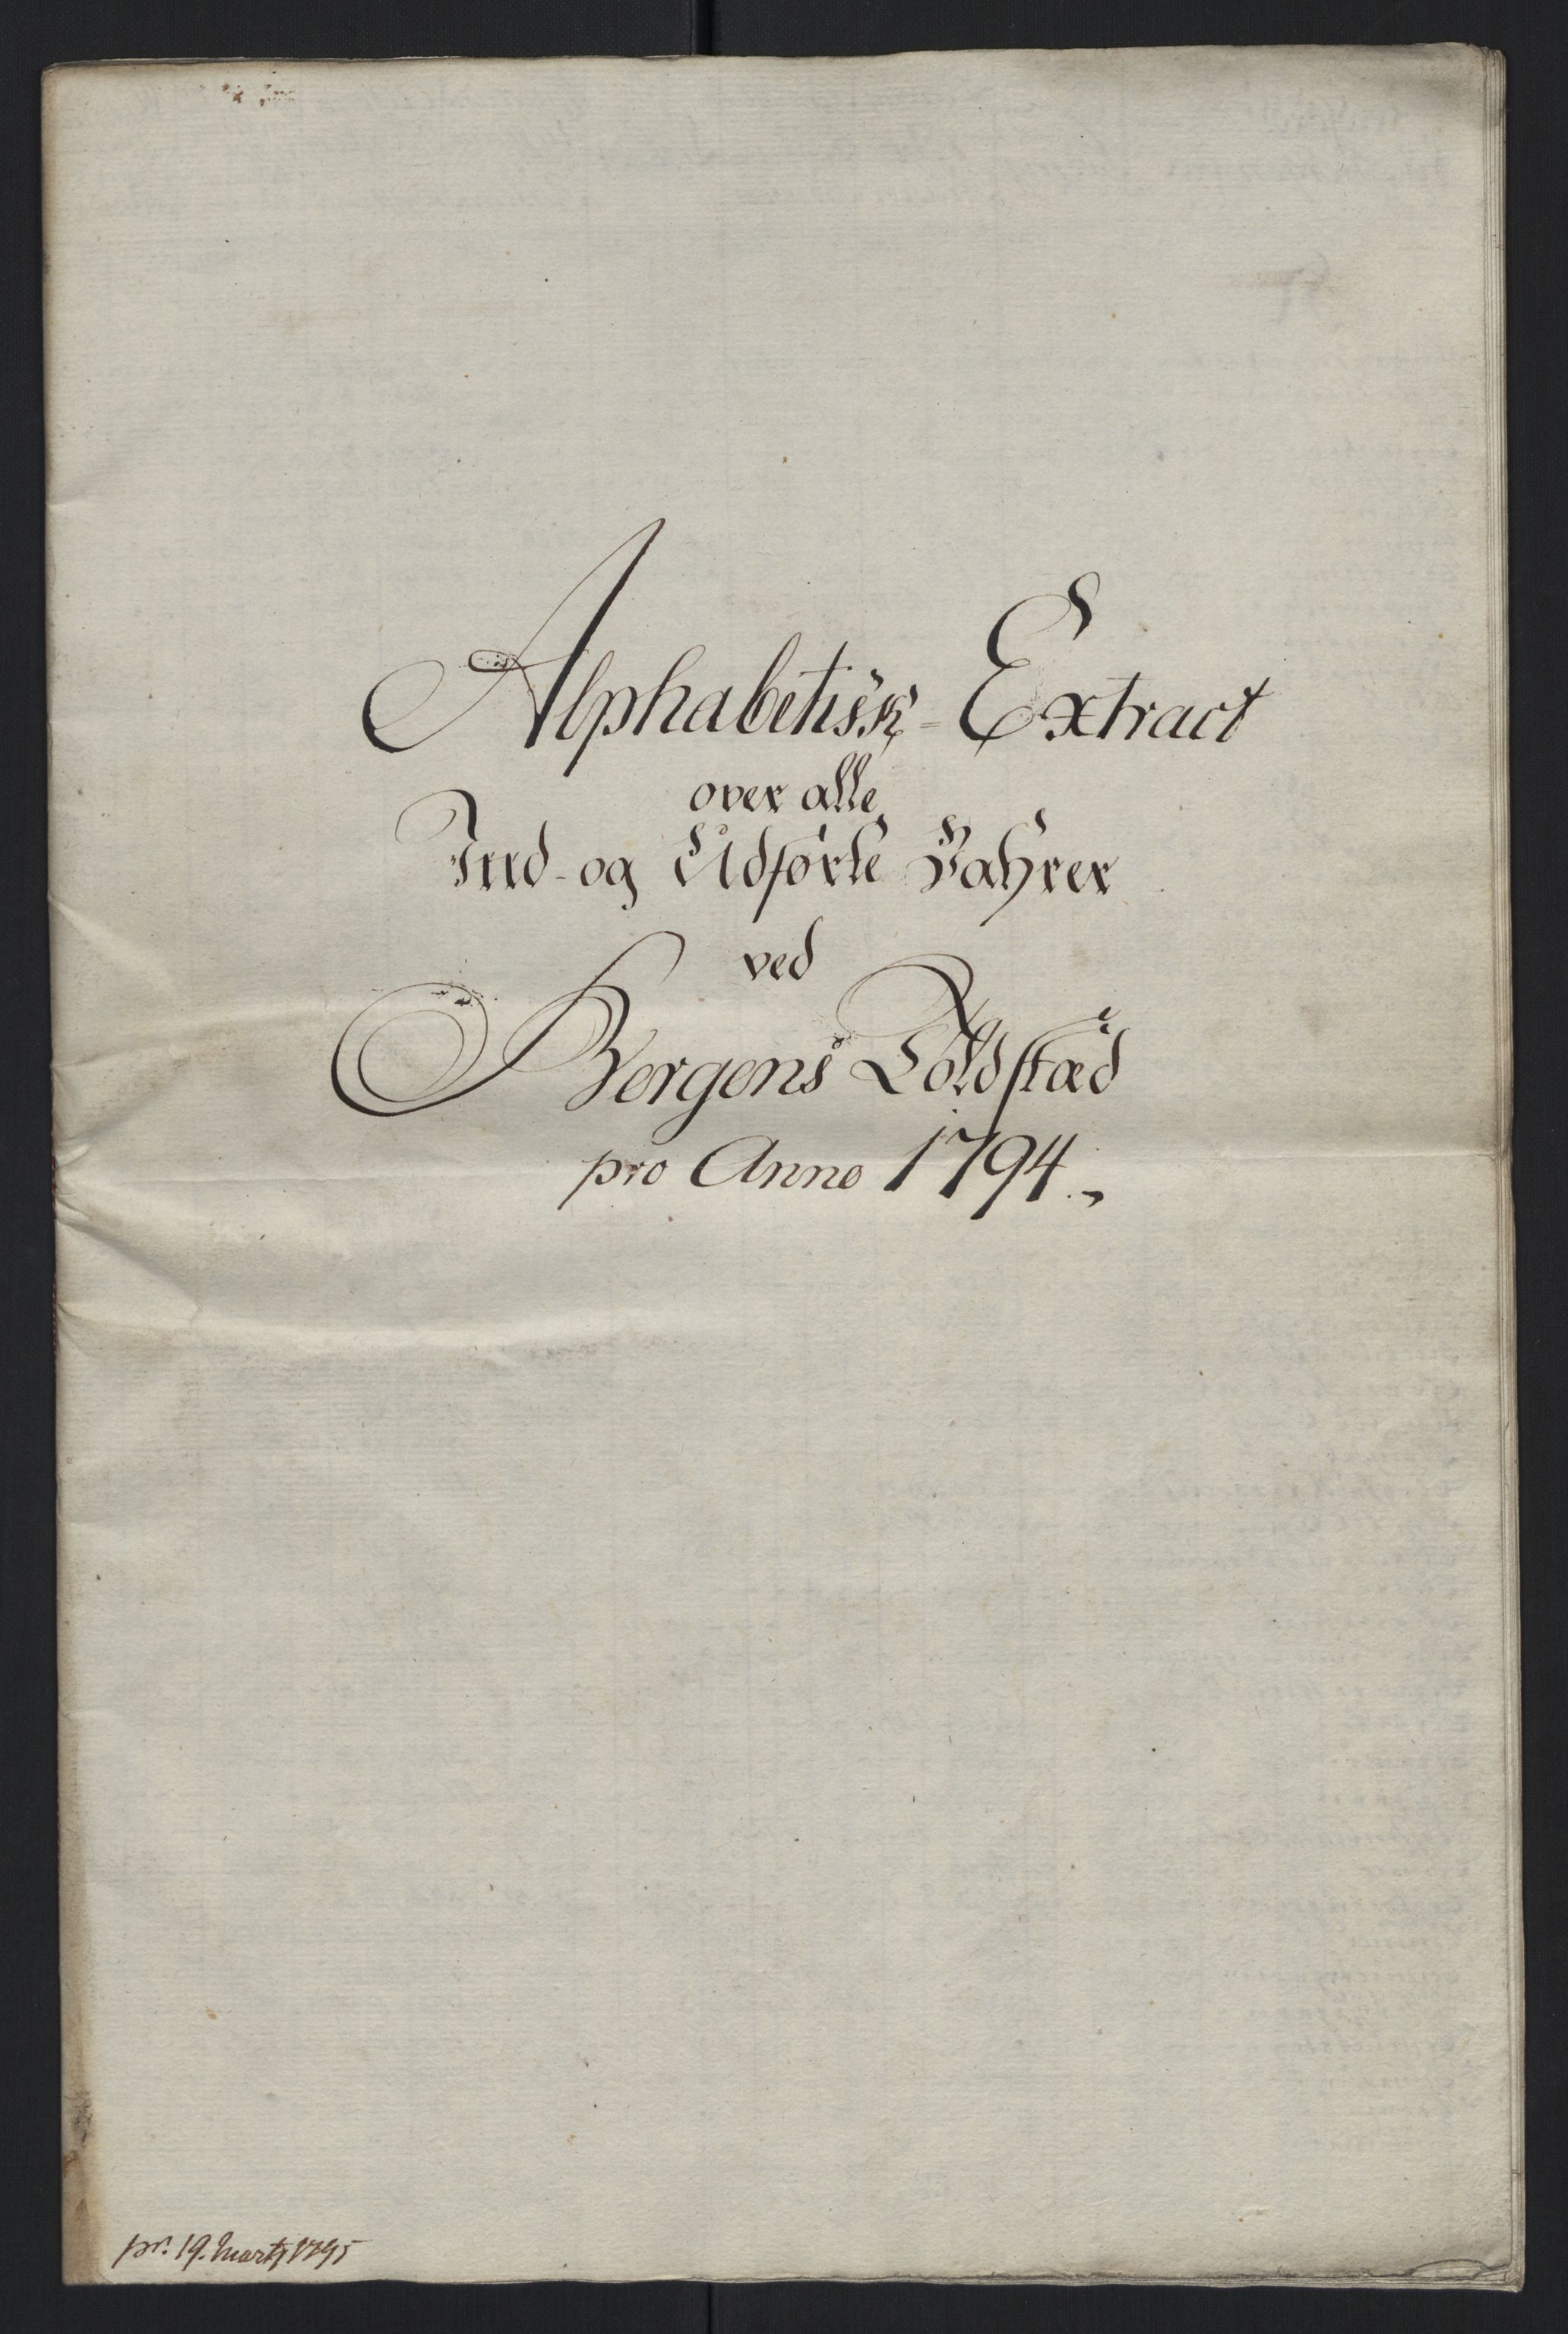 Alphabetisk-Extract
over alle
Ind- og Udførte Vahrer
ved
Bergens Toldstæd
pro Anno 1794.
pr. 19. Martj 1795